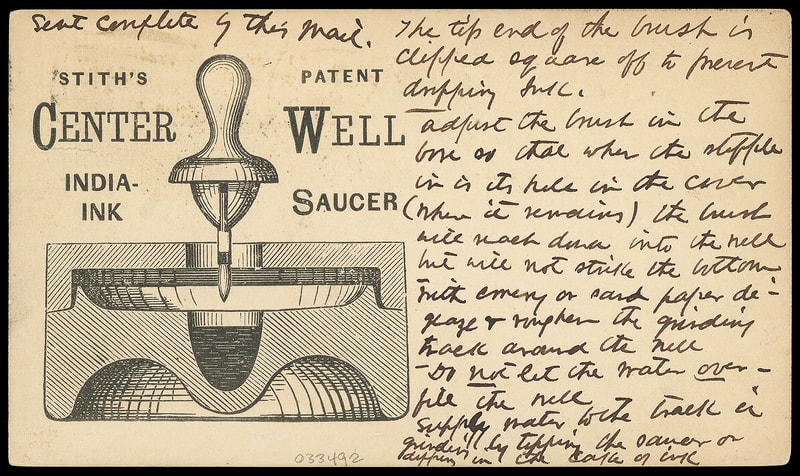 Sent Complete by this Mail.
STITH'S PATENT
CENTER WELL
INDIA-
INK
SAUCER
The tip end of the brush is
clipped square off to prevent
dripping Ink.
adjust the brush in the
bore so that when the stopple
in in its hole in the cover
(when it remains) the brush
will reach down into the well
but will not strike the bottom
With emery or sand paper de-
glaze & roughen the grinding
track around the well
- Do not let the water over-
fill the well
Supply water to the track in
grinding by tipping the saucer or
dipping in the cake of ink
033492